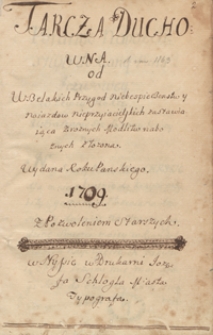 TARCZA DUCHO
WNA
od
Wszelakich Przygod niebezpieczenstw y
naiazdow nieprzyiacielskich zastawia
iącaRożnych Modlitw nabo
żnych złożona.
Wydana Roku Pańskiego,
1709
Z Pozwoleniem Starszych.
w Nyśie w Drukarni Joze
fa Schlogla
Typografa.